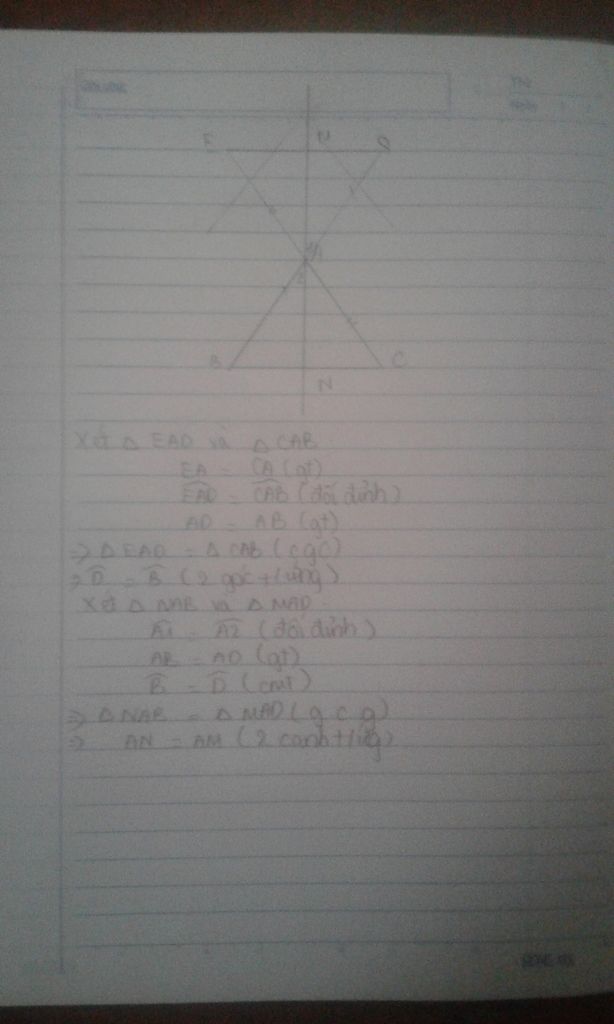 E M D
A
B C
N
Xét △ EAD và △ CAB
EA = CA (gt)
EAD = CAB (đối đỉnh)
AD = AB (gt)
=> △ EAD = △ CAB (cgc)
=> D = B (2 góc t/ứng)
Xét △ NAB và △ MAD
A1 = A2 (đối đỉnh)
AB = AD (gt)
B = D (cmt)
=> △ NAB = △ MAD (g c g)
=> AN = AM (2 cạnh t/ứng)